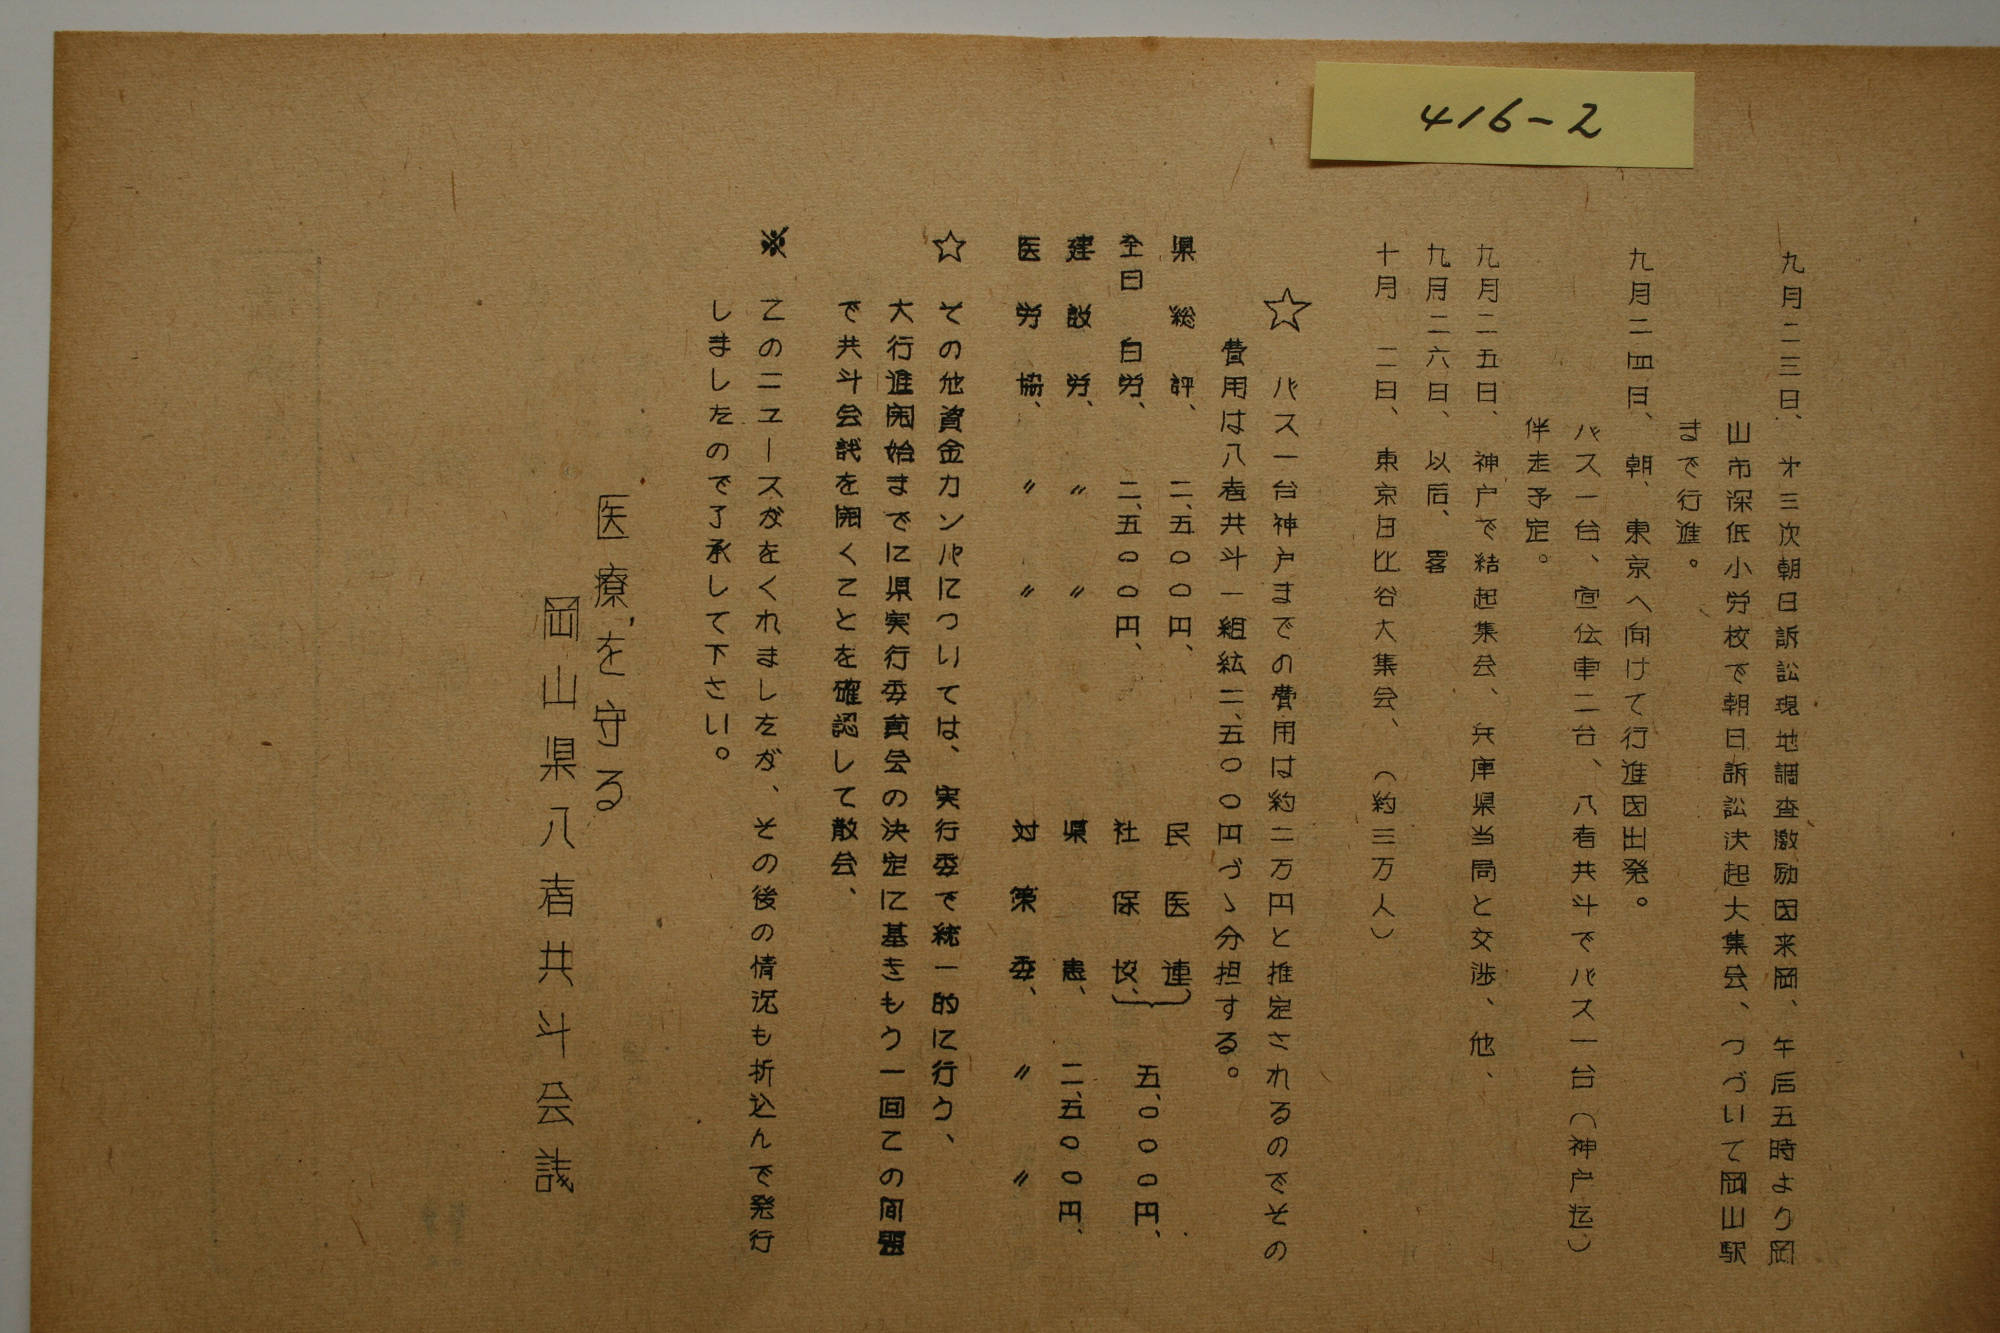 416-2
九月二三日、才三次朝日訴訟現地調査激励団来岡、午后五時より岡
山市深低小労校で朝日訴訟決起大集会、つづいて岡山駅
まで行進。
九月二四日、朝、東京へ向けて行進団出発。
バス一台、宣伝車二台、八者共斗でバス一台(神戸迄)
伴走予定。
九月二五日、神戸で結起集会、兵庫県当局と交渉、他、
九月二六日、以后、畧
十月 二日、東京日比谷大集会、(約三万人)
☆ バス一台神戸までの費用は約二万円と推定されるのでその
費用は八者共斗一組織二、五〇〇円づゝ分担する。
県総評、 二、五〇〇円、 民医連
全日自労、 二、五〇〇円、 社保協、 五、〇〇〇円、
建設労、 〃 〃 県患、 二、五〇〇円、
医労協、 〃 〃 対策委、 〃 〃
☆ その他資金カンパについては、実行委で統一的に行う、
大行進開始までに県実行委員会の決定に基きもう一回この問題
で共斗会議を開くことを確認して散会、
※ このニュースがをくれましたが、その後の情況も折込んで発行
しましたので了承して下さい。
医療を守る
岡山県八者共斗会議